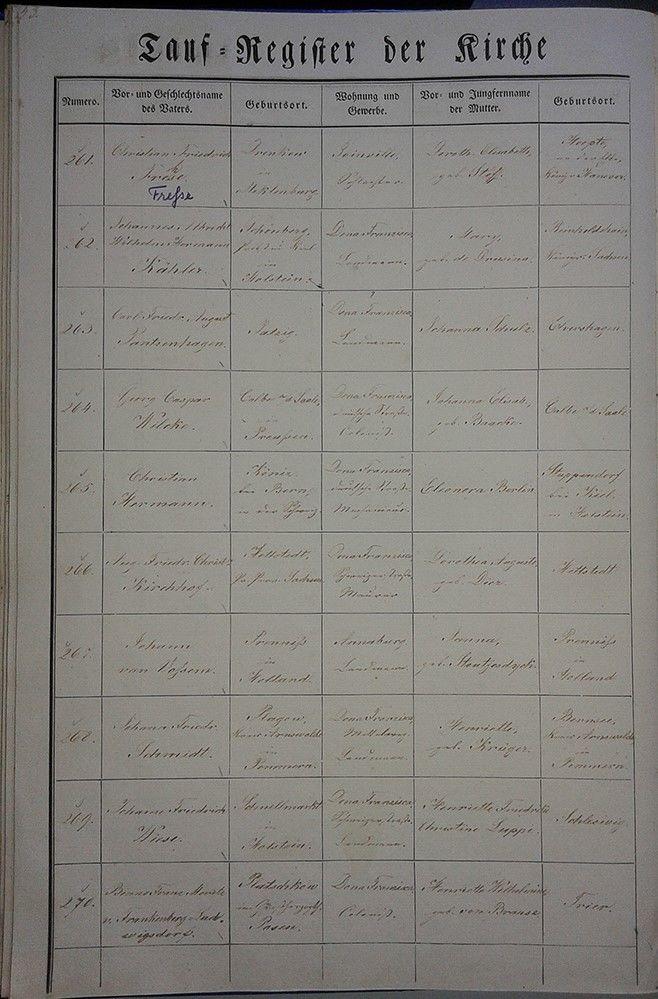 Tauf-Register der Kirche
Numero.
Vor- und Geschlechtsname
des Vaters.
Geburtsort.
Wohnung und
Gewerbe.
Vor- und Jungfernname
der Mutter.
Geburtsort.
261.
Christian Friedrich
Frese.
Freſse
in
Meklenburg.
Joinville,
Doroth. Elisabeth,
geb.
262.
Johannes Albrecht
Wilhelm Hermann
Kähler.
Schönberg,
in
Holstein.
Dona Francisca,
Landmann.
Mary,
geb. de Drusina.
263.
Carl Friedr. August
Pantzenhagen.
Natzig.
Dona Francisca,
Landmann.
Johanna Schulz.
Elvershagen.
264.
Georg Caspar
Wilcke.
Calbe a/d Saale,
Preußen.
Dona Francisca,
deutsche Straße.
Colonist.
Johanna Elisab.,
geb. Baacke.
Calbe a/d Saale
265.
Christian
Hermann.
Köniz
bei Bern,
in der Schweiz.
Dona Francisca,
deutsche Straße.
Eleonora Berlin
Stuppendorf
bei Kiel
in Holstein.
266.
Aug. Friedr. Christ.
Kirchhof.
Hettstedt,
Pr. Prov. Sachsen
Dona Francisca
Schweizerstraße
Maurer
Dorothea Auguste,
geb. Diez.
Hettstedt
267.
Johann
van Vossem.
in
Holland.
Annaburg
Landmann
Janna,
in
Holland
268.
Johann Friedr.
Schmidt.
Kreis Arnswalde
in
Pommern.
Dona Francisca
Mittelweg
Landmann
Henriette,
geb. Krüger.
Bernsee,
Kreis Arnswalde
in
Pommern
269.
Johann Friedrich
Wiese.
Schnellmarkt
in
Holstein.
Dona Francisca
Schweizerstraße
Landmann.
Henriette Friedrike
Christine Luppi.
Schleswig.
270.
Franz Moritz
v. Frankenberg-Lud-
wigsdorf.
Ratschkow
Posen.
Dona Francisca
Colonist.
Henriette Wilhelmine
geb. von Brause
Trier.